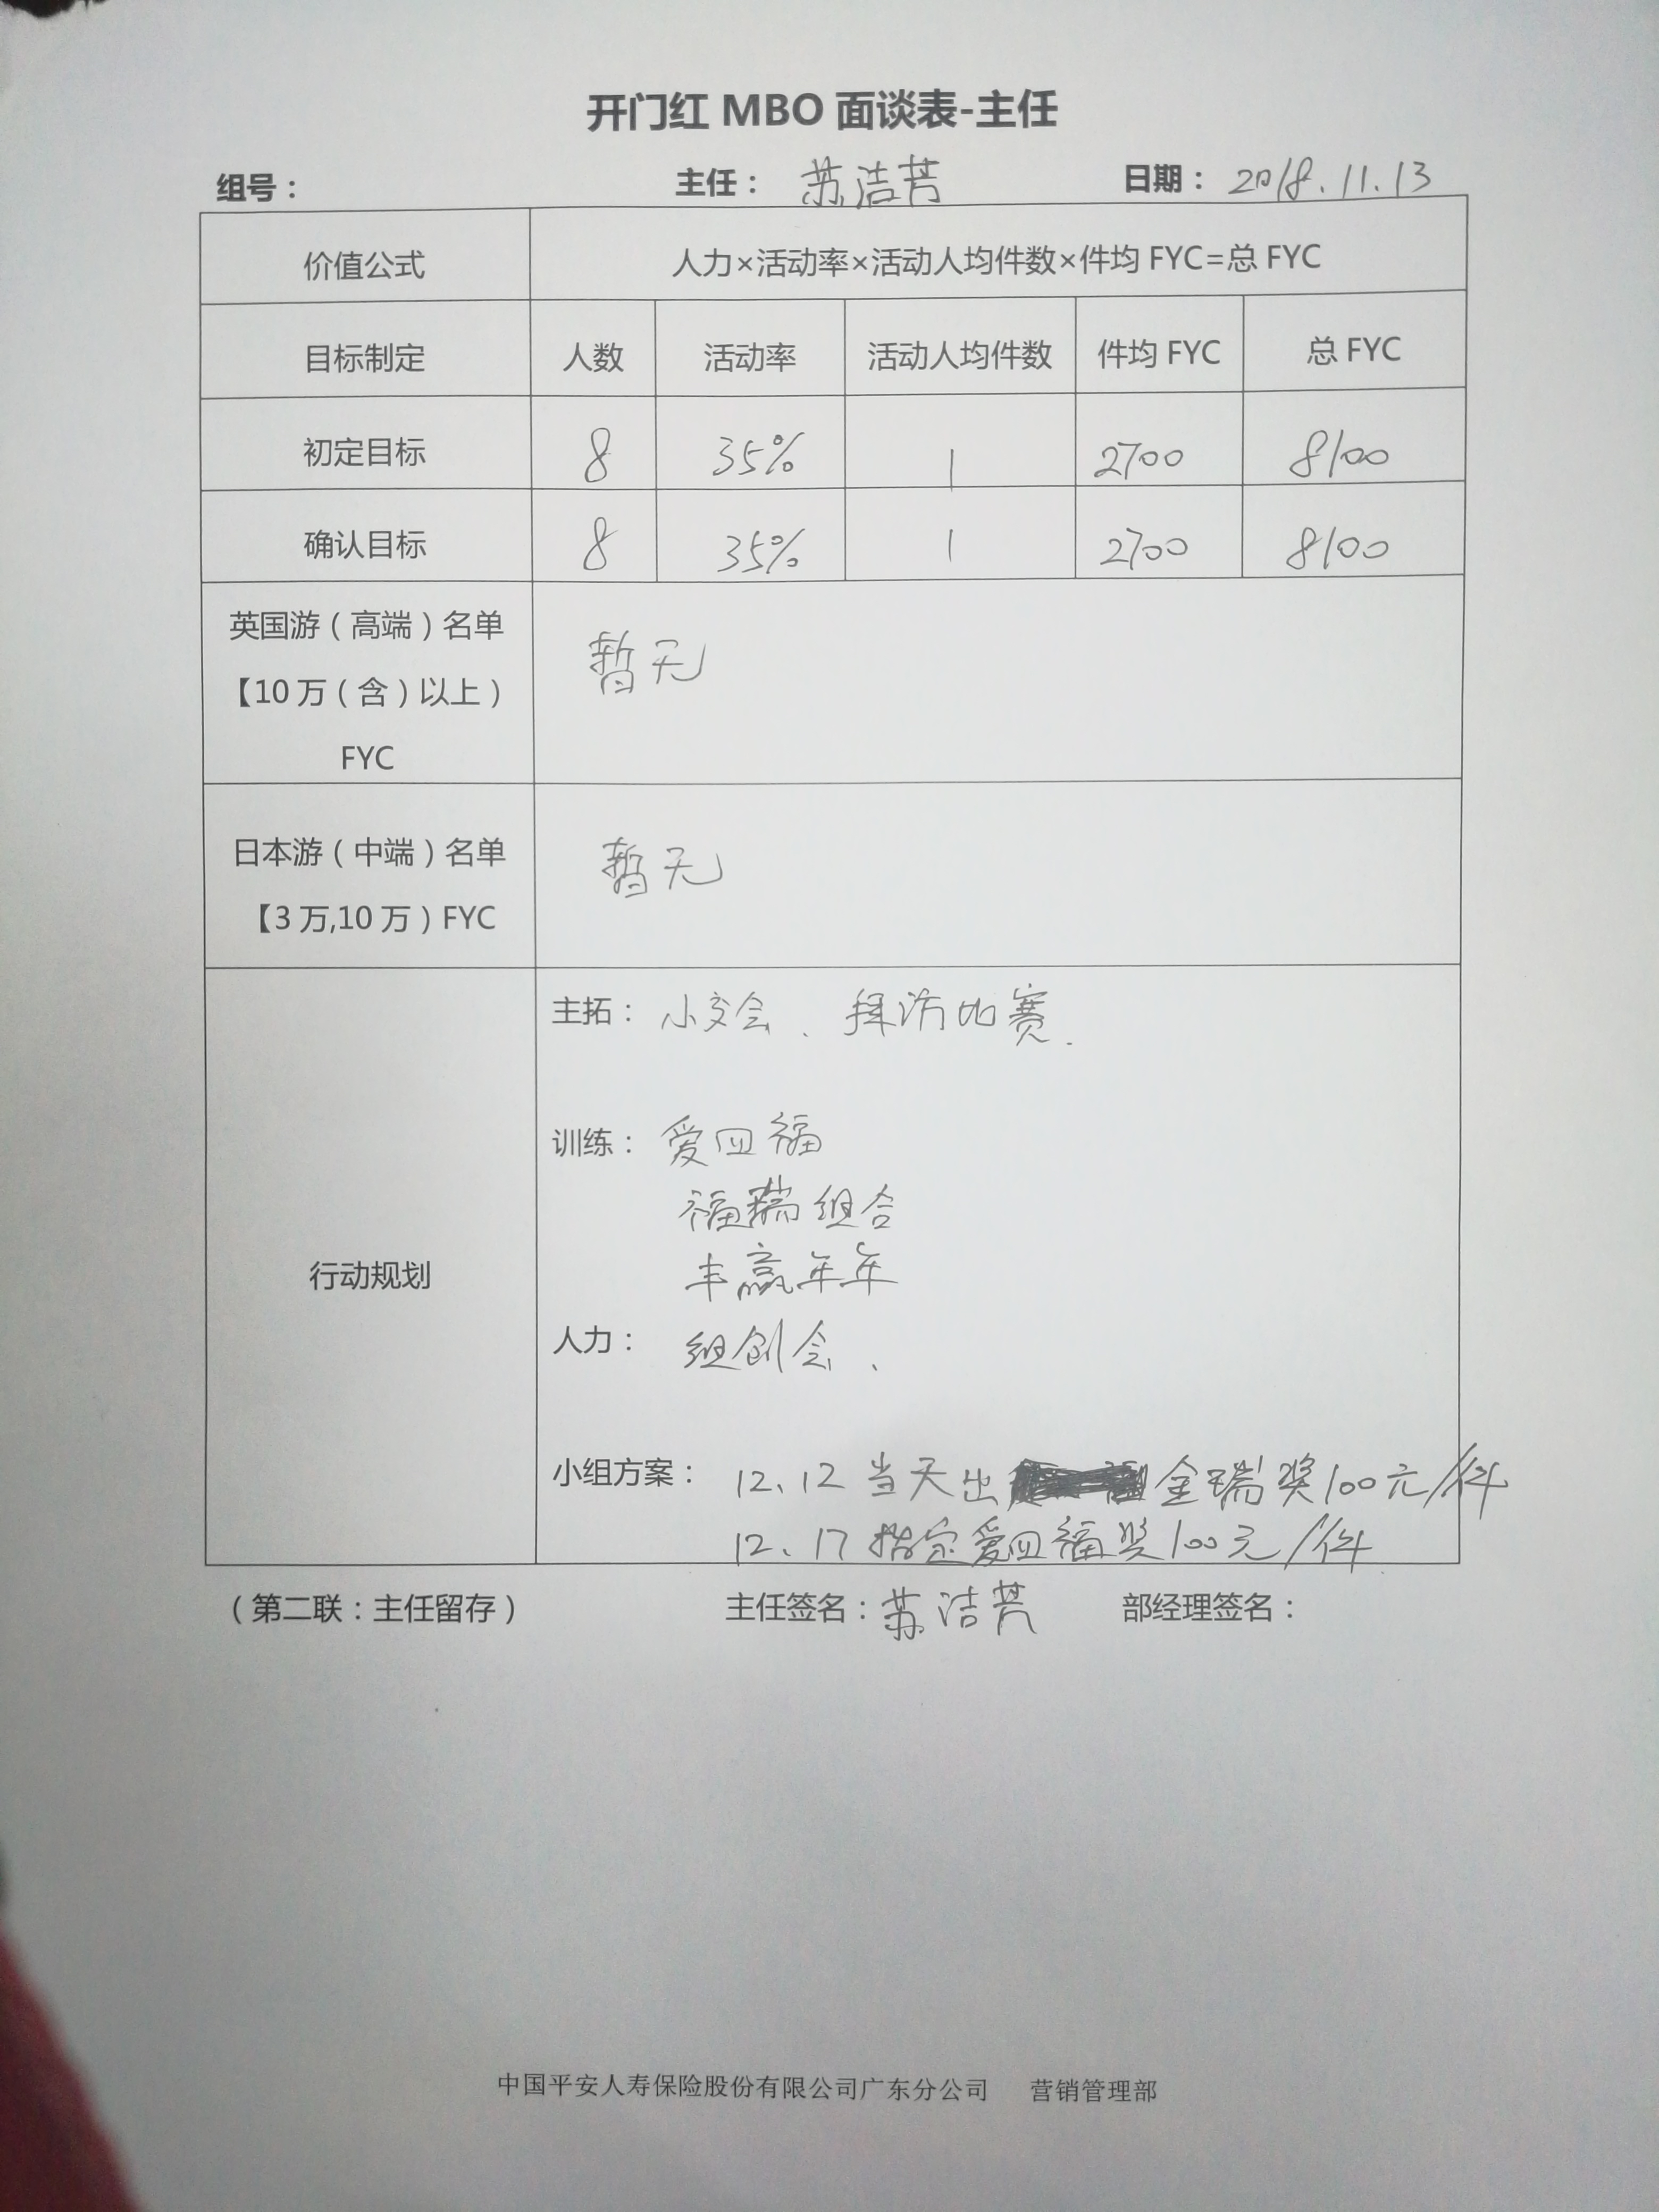 开门红 MBO 面谈表-主任
组号： 主任： 苏洁芳 日期： 2018.11.13
价值公式 人力×活动率×活动人均件数×件均 FYC=总 FYC
目标制定 人数 活动率 活动人均件数 件均 FYC 总 FYC
初定目标 8 35% 1 2700 8100
确认目标 8 35% 1 2700 8100
英国游（高端）名单
【10 万（含）以上）
FYC
暂无
日本游（中端）名单
【3 万,10 万）FYC
暂无
行动规划
主拓： 小交会、拜访比赛.
训练： 爱四福
福瑞组合
丰赢年年
人力： 组创会、
小组方案： 12、12 当天出 金瑞奖100元/件
12、17 指定爱四福奖100元/件
（第二联：主任留存） 主任签名：苏洁芳 部经理签名：
中国平安人寿保险股份有限公司广东分公司 营销管理部